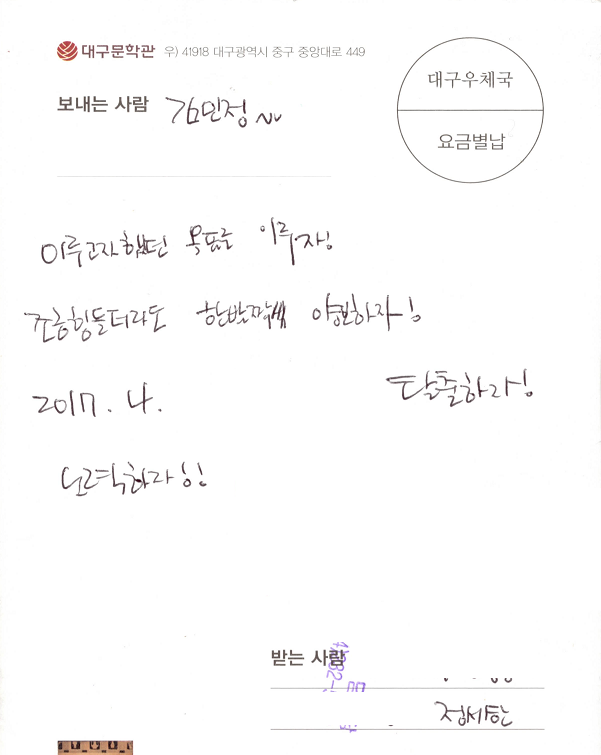 대구문학관 우) 41918 대구광역시 중구 중앙대로 449
대구우체국
요금별납
보내는 사람 김민정
이루고자했던 목표를 이루자!
조금힘들더라도 한발짝씩 양보하자!
2017. 4.
탈출하라!
노력하라!!
받는 사람
정세한